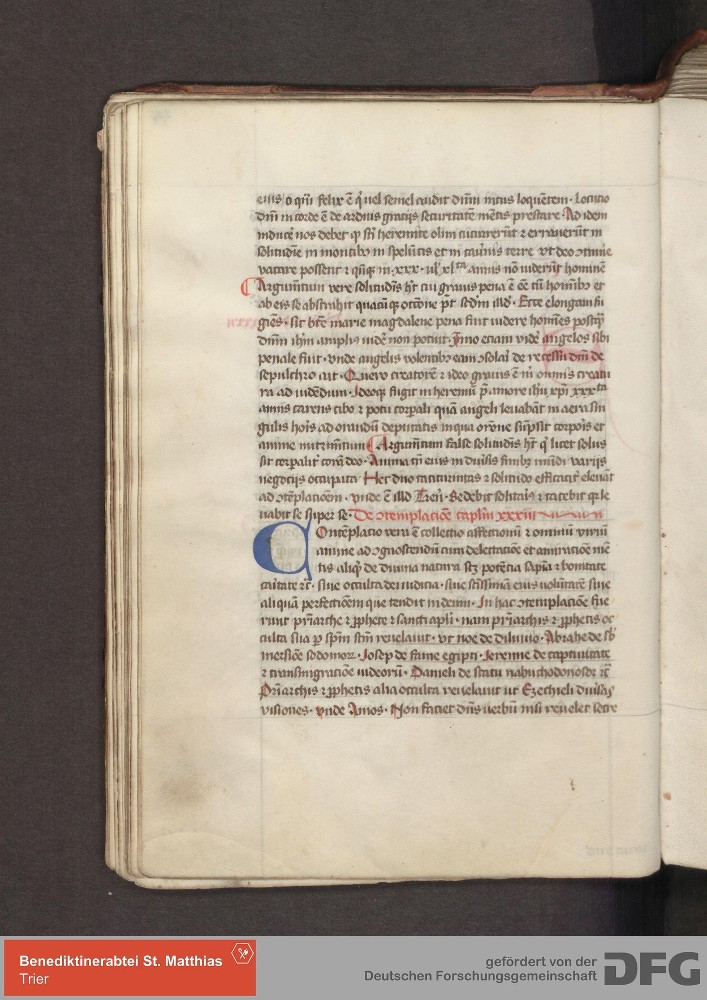 eius o qm̄ felix ē q̇ uel semel audit dn̄m intus loquētem · Locutio
dn̄i in corde ē de arduis gratijs securitatē mētis prestare · Ad idem
inducē nos debet sti heremite olim currerūt ⁊ errauerūt in
solitudīe in montibꝫ in spelūcis et in cauīnis terre vt deo
vacare possent ⁊ in · xxx · ul̓ xlᵗᵃ annis nō uiderūt hominē
Argumētum vere solitudīs hr̄t cui grauis pena ē ē cū homībꝫ et
ab eis se abstrahit pt̄ scdm illd̓ · Ecce elongaui fu
giēs · sic btē marie magdalene pena fuit uidere homīes postq̄
dn̄m ihm̄ amplius uidē non potuit · Imo etiam vidē angelos sibi
penale fuit · vnde angelis volentibꝫ eam ↄsolari de recessu dn̄i de
sepulchro ait · Quero creatorē ⁊ ideo grauis ē m̄ omīs creatu
ra ad uidendum · Ideoqꝫ fugit in heremū p̄ amore ihū xp̄i xxxᵗᵃ
annis carens cibo ⁊ potu corpali quā angeli leuabāt in aera sin
gulis horis ad orandū deputatis in qua orōne corpoīs et
anime nutrimētum Argumētum false solitudīs hr̄t q̇ licet solus
sit corpalit̓ corā deo · Anima tn̄ eius in diuīsis finibꝫ mūdi varijs
negotijs occupata Hec duo taciturnitas ⁊ solitudo efficacit̓ eleuāt
ad ↄtēplacionem · vnde ē illd̓ Tren̄ · Sedebit solitariꝰ ⁊ tacebit qꝛ le
uabit se super se · De ↄtemplacione caplm̄ xxxiii
Contēplacio vera ē collectio affectionū ⁊ omniū viriū
anime ad ↄgnoscendū cum delectatiōe et amiratiōe mē
tis aliqd̓ de diuina natura scꝫ potētia sapiā ⁊ bonitate
caritate ⁊c̄ · siue occulta dei iudicia · siue sctissimā eius volūtatē siue
aliquā perfectiōem que tendit in deum · In hac ↄtemplaciōe fue
runt pr̄iarche ⁊ ꝓphete ⁊ sancti apli̓ · nam pr̄iarchis ⁊ ꝓphetis oc
culta sua ꝑ spm̄ stm̄ reuelauit · vt noe de diluuio · Abrahe de sb̓
mersiōe sodomoꝝ · Josep de fame egipti · Jeremie de captiuitate
⁊ transmigratiōe iudeorū · Danieli de statu nabuchodonosor ⁊c̄
Pr̄iarchis ⁊ ꝓphetis alia occulta reuelauit ut Ezechieli diuīsas
visiones · vnde Amos · Non faciet dn̄s verbū nisi reuelet secre
Benediktinerabtei St. Matthias
Trier
gefördert von der
Deutschen Forschungsgemeinschaft
DFG